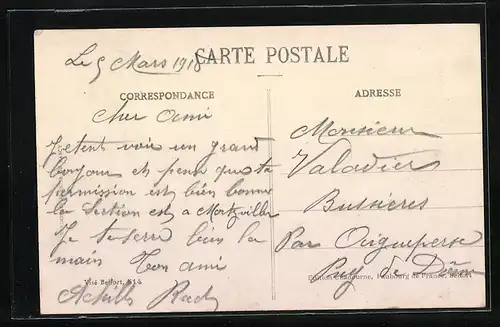 Le 5 Mars 1918
CARTE POSTALE
CORRESPONDANCE
cher ami
Je tent voir un grand
bonjour et pense que ta
permission est bien bonne
la Section est a Mortzviller
Je te serre bien la
main Ton ami
Achille
Visé Belfort, 814
ADRESSE
Monsieur
Valadier
Bussières
Par Aigueperse
Puy de Dôme
Edition Chadourne, Faubourg de France, Belfort